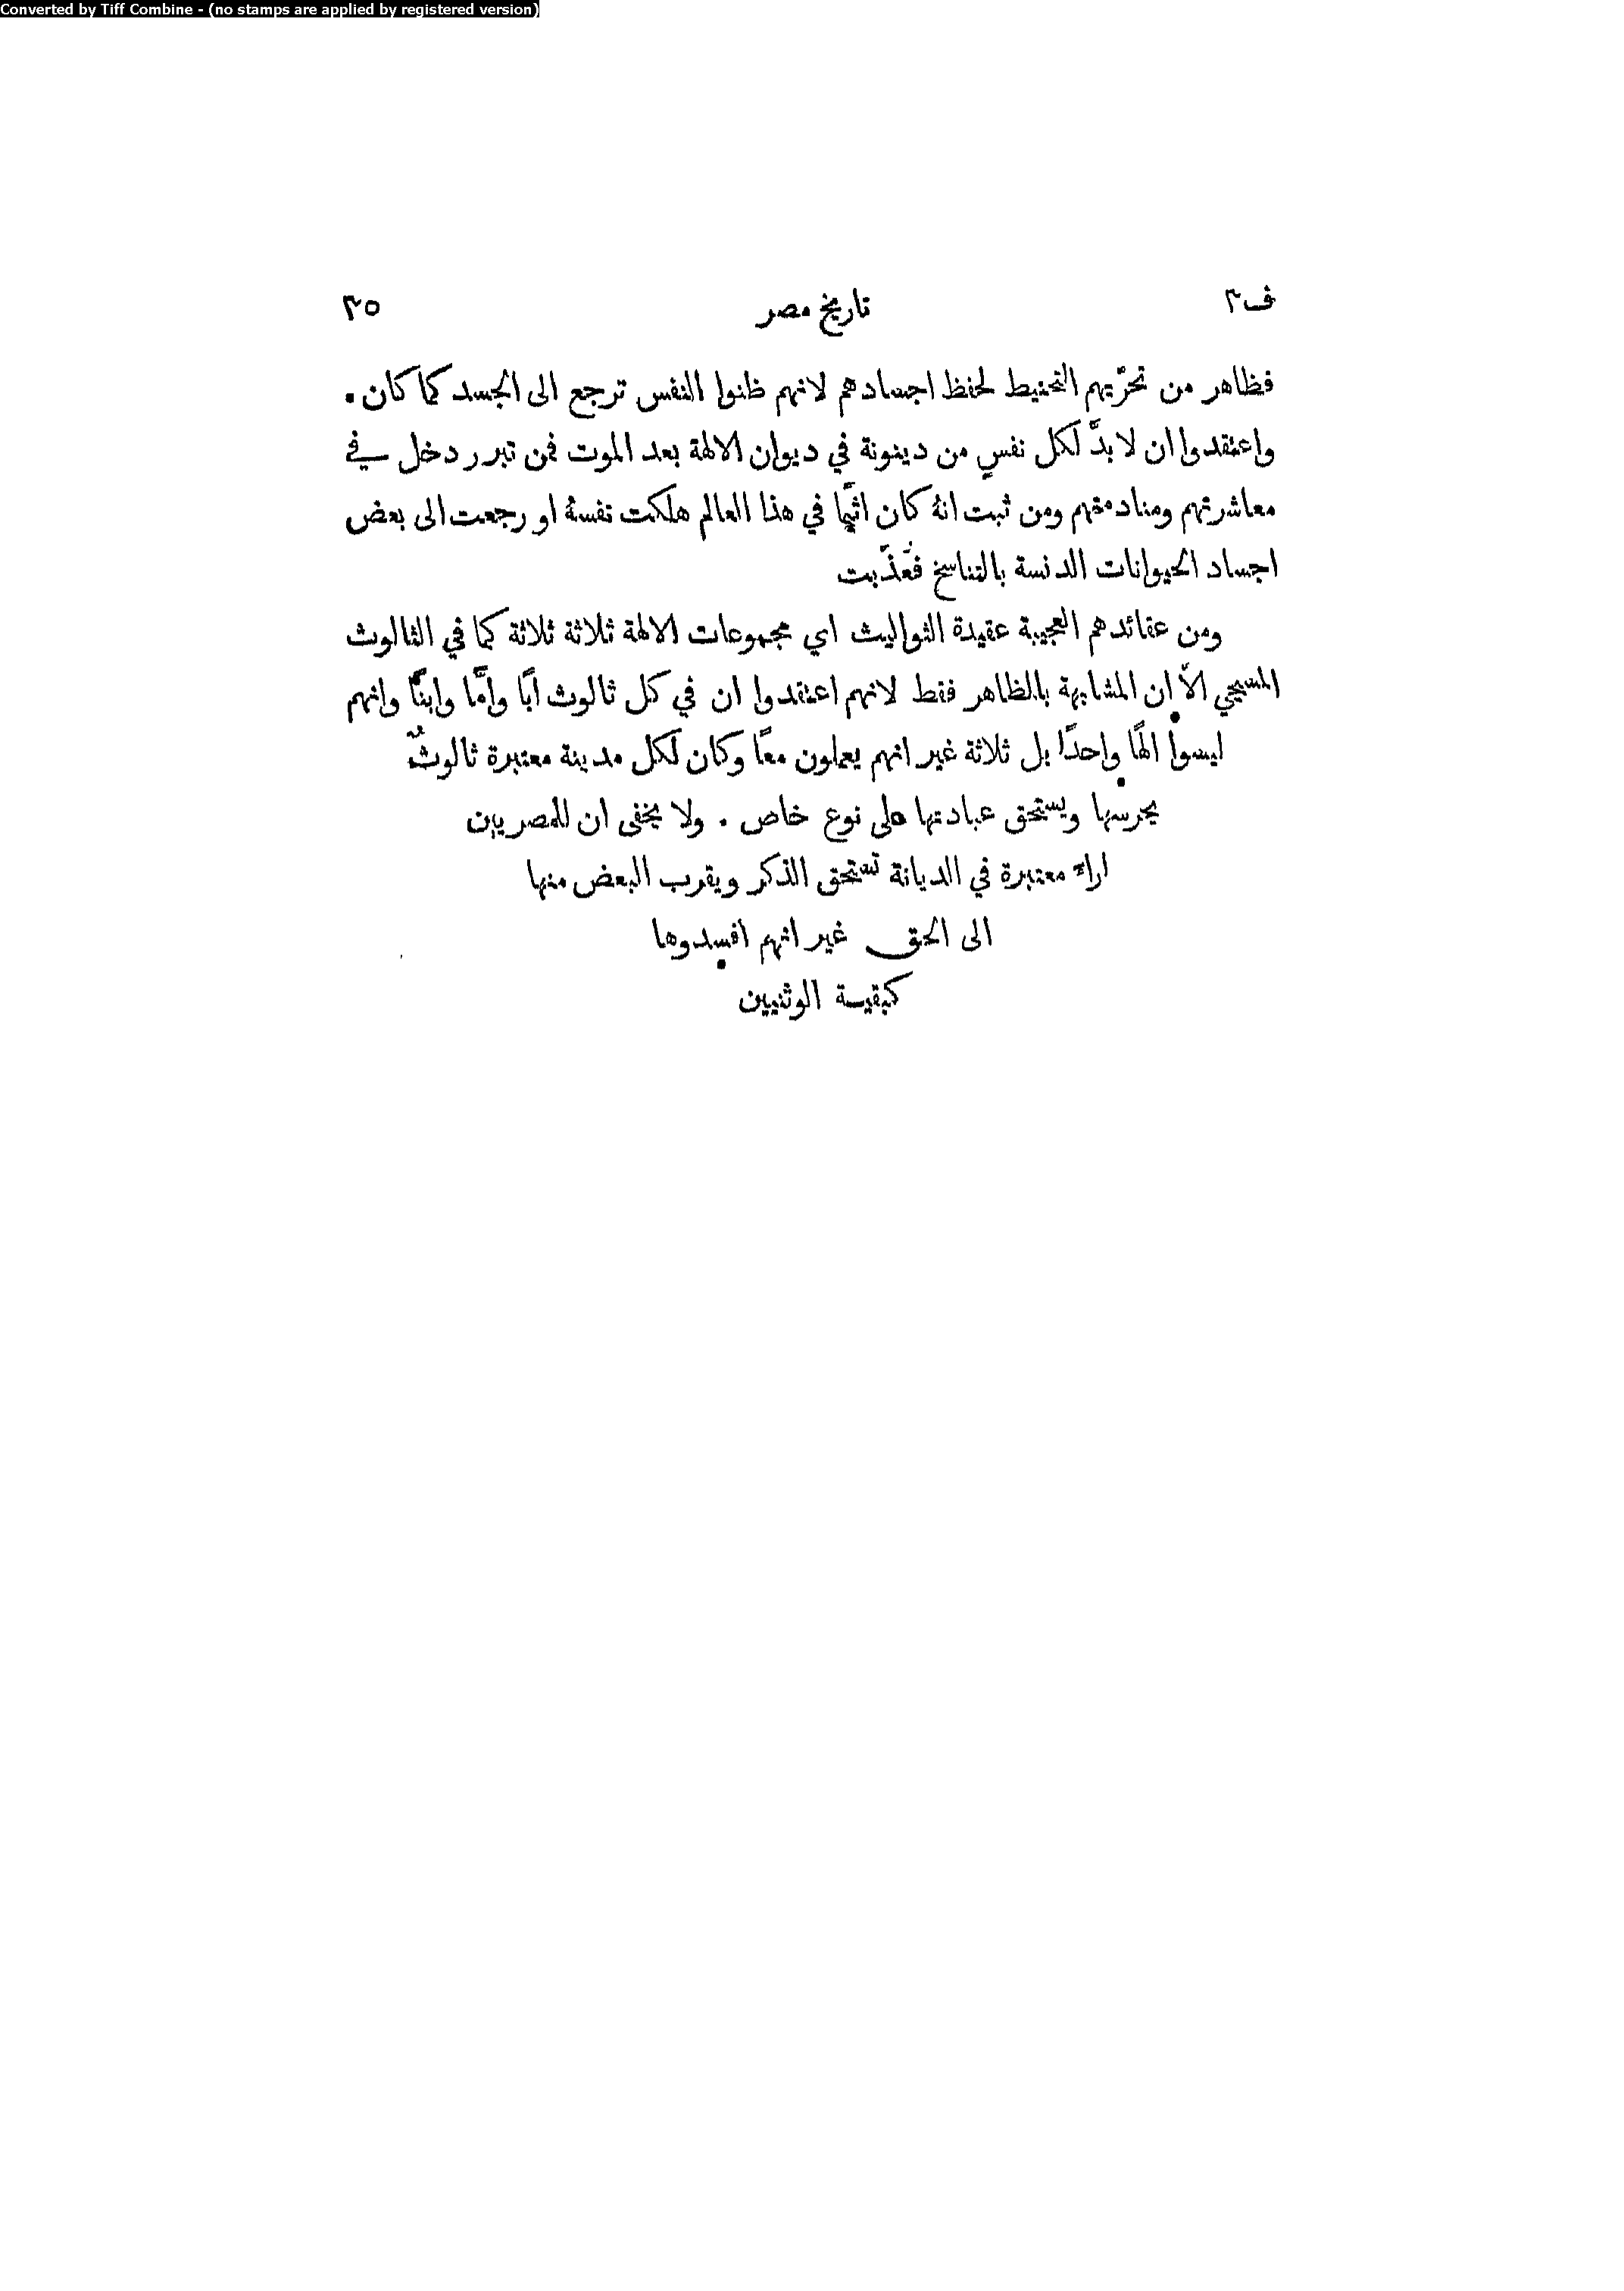 Converted by Tiff Combine - (no stamps are applied by registered version)
ف ٣ تاريخ مصر ٣٥
فظاهر من تحرّيهم التحنيط لحفظ اجسادهم لانهم ظنوا النفس ترجع الى الجسد كما كان .
واعتقدوا ان لا بدَّ لكل نفسٍ من دينونة في ديوان الالهة بعد الموت فمن تبرر دخل في
معاشرتهم ومنادمتهم ومن ثبت انهُ كان اثيمًا في هذا العالم هلكت نفسهُ او رجعت الى بعض
اجساد الحيوانات الدنسة بالتناسخ فعُذّبت
ومن عقائدهم العجيبة عقيدة الثواليث اي مجموعات الالهة ثلاثة ثلاثة كما في الثالوث
المسيحي الاَّ ان المشابهة بالظاهر فقط لانهم اعتقدوا ان في كل ثالوث ابًا وامًّا وابنًا وانهم
ليسوا الهًا واحدًا بل ثلاثة غير انهم يعملون معًا وكان لكل مدينة معتبرة ثالوثٌ
يحرسها ويستحق عبادتها على نوع خاص . ولا يخفى ان للمصريين
اراءً معتبرة في الديانة تستحق الذكر ويقرب البعض منها
الى الحق غير انهم افسدوها
كبقية الوثنيين